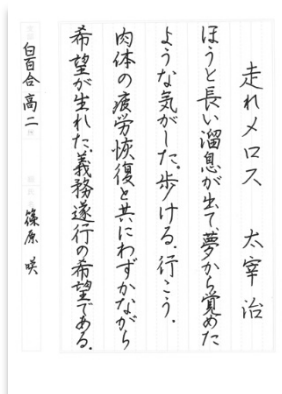 走れメロス　太宰治
ほうと長い溜息が出て、夢から覚めた
ような気がした。歩ける。行こう。
肉体の疲労恢復と共にわずかながら
希望が生れた。義務遂行の希望である。
白百合 高二 篠原 咲